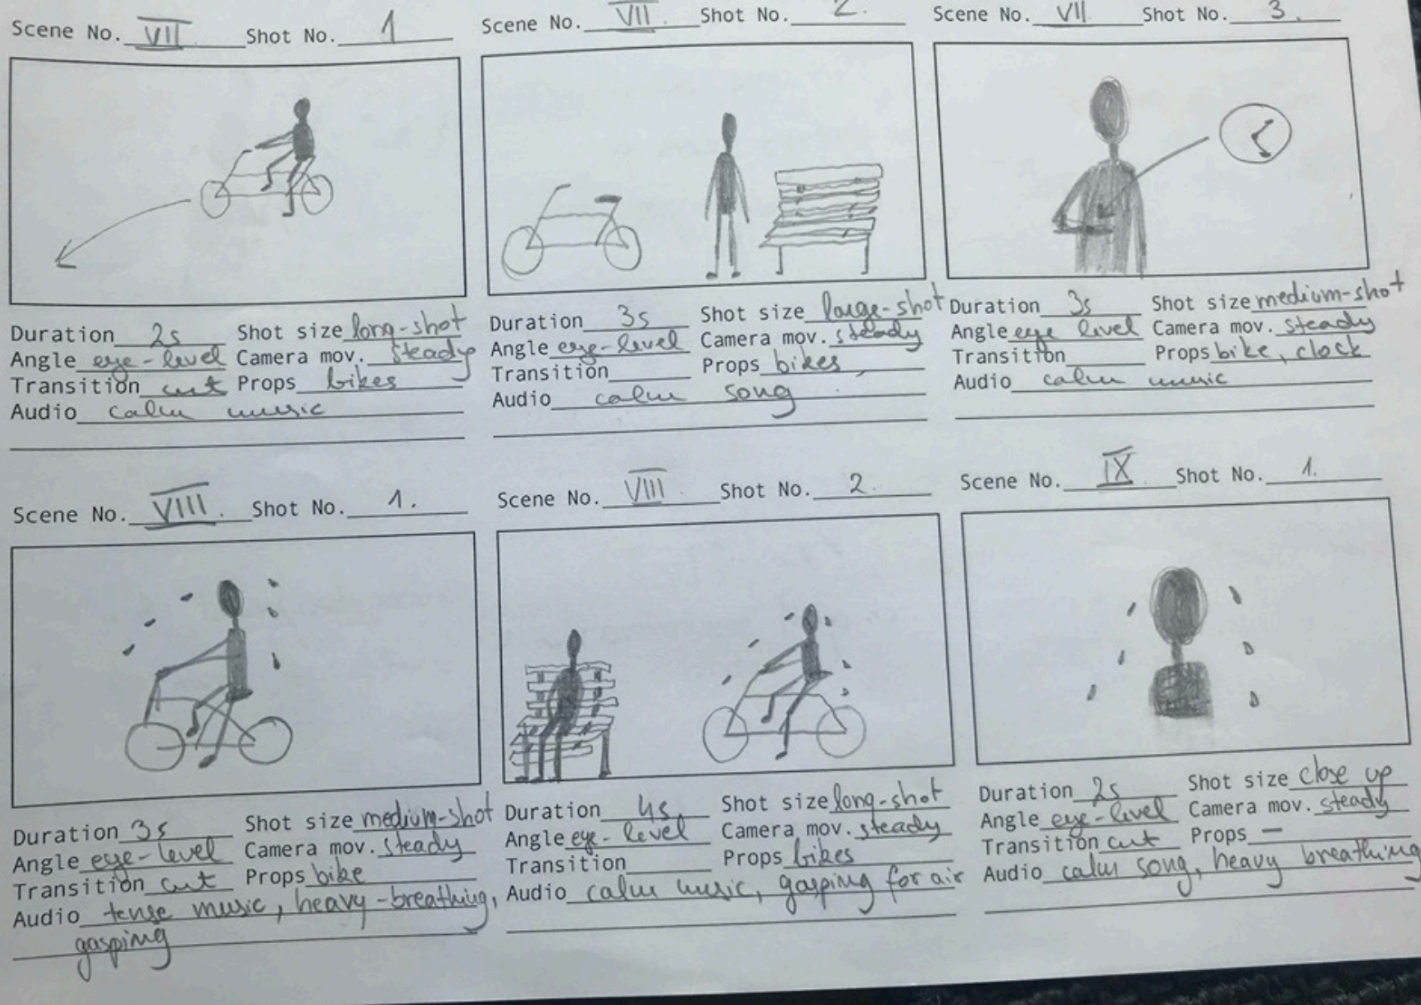 Scene No. VII. Shot No. 1
Duration 2s Shot size long-shot
Angle eye-level Camera mov. steady
Transition cut Props bikes
Audio calm music
Scene No. VII. Shot No. 2.
Duration 3s Shot size large-shot
Angle eye-level Camera mov. steady
Transition Props bikes
Audio calm song
Scene No. VII. Shot No. 3.
Duration 3s Shot size medium-shot
Angle eye level Camera mov. steady
Transition Props bike, clock
Audio calm music
Scene No. VIII. Shot No. 1.
Duration 3s Shot size medium-shot
Angle eye-level Camera mov. steady
Transition cut Props bike
Audio tense music, heavy-breathing,
gasping
Scene No. VIII. Shot No. 2.
Duration 4s Shot size long-shot
Angle eye-level Camera mov. steady
Transition Props bikes
Audio calm music, gasping for air
Scene No. IX. Shot No. 1.
Duration 2s Shot size close up
Angle eye-level Camera mov. steady
Transition cut Props —
Audio calm song, heavy breathing